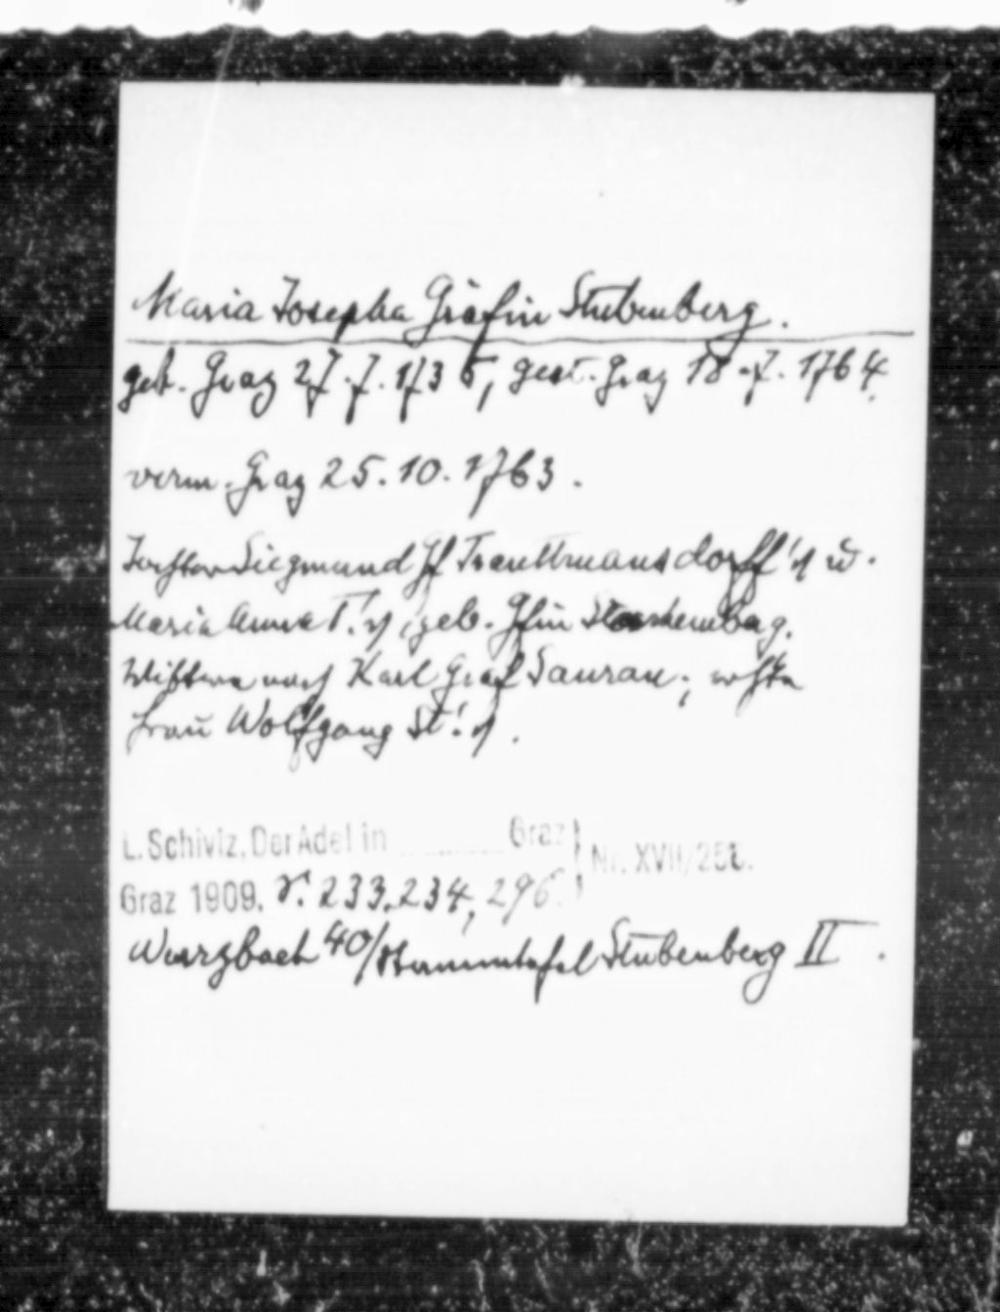 Maria Josepha Gräfin Stubenberg.
geb. Graz 27.7.1735, gest. Graz 18.7.1764.
verm. Graz 25.10.1763.
Tochter Siegmund Gf Trauttmansdorff's u.
Maria Anna T.'s, geb. Gfin Starhemberg.
Witwe nach Karl Graf Saurau; erste
Frau Wolfgang St.'s.
L. Schiviz, Der Adel in Graz
Nr. XVII/258.
Graz 1909. S. 233, 234, 296.
Wurzbach 40/Stammtafel Stubenberg II.